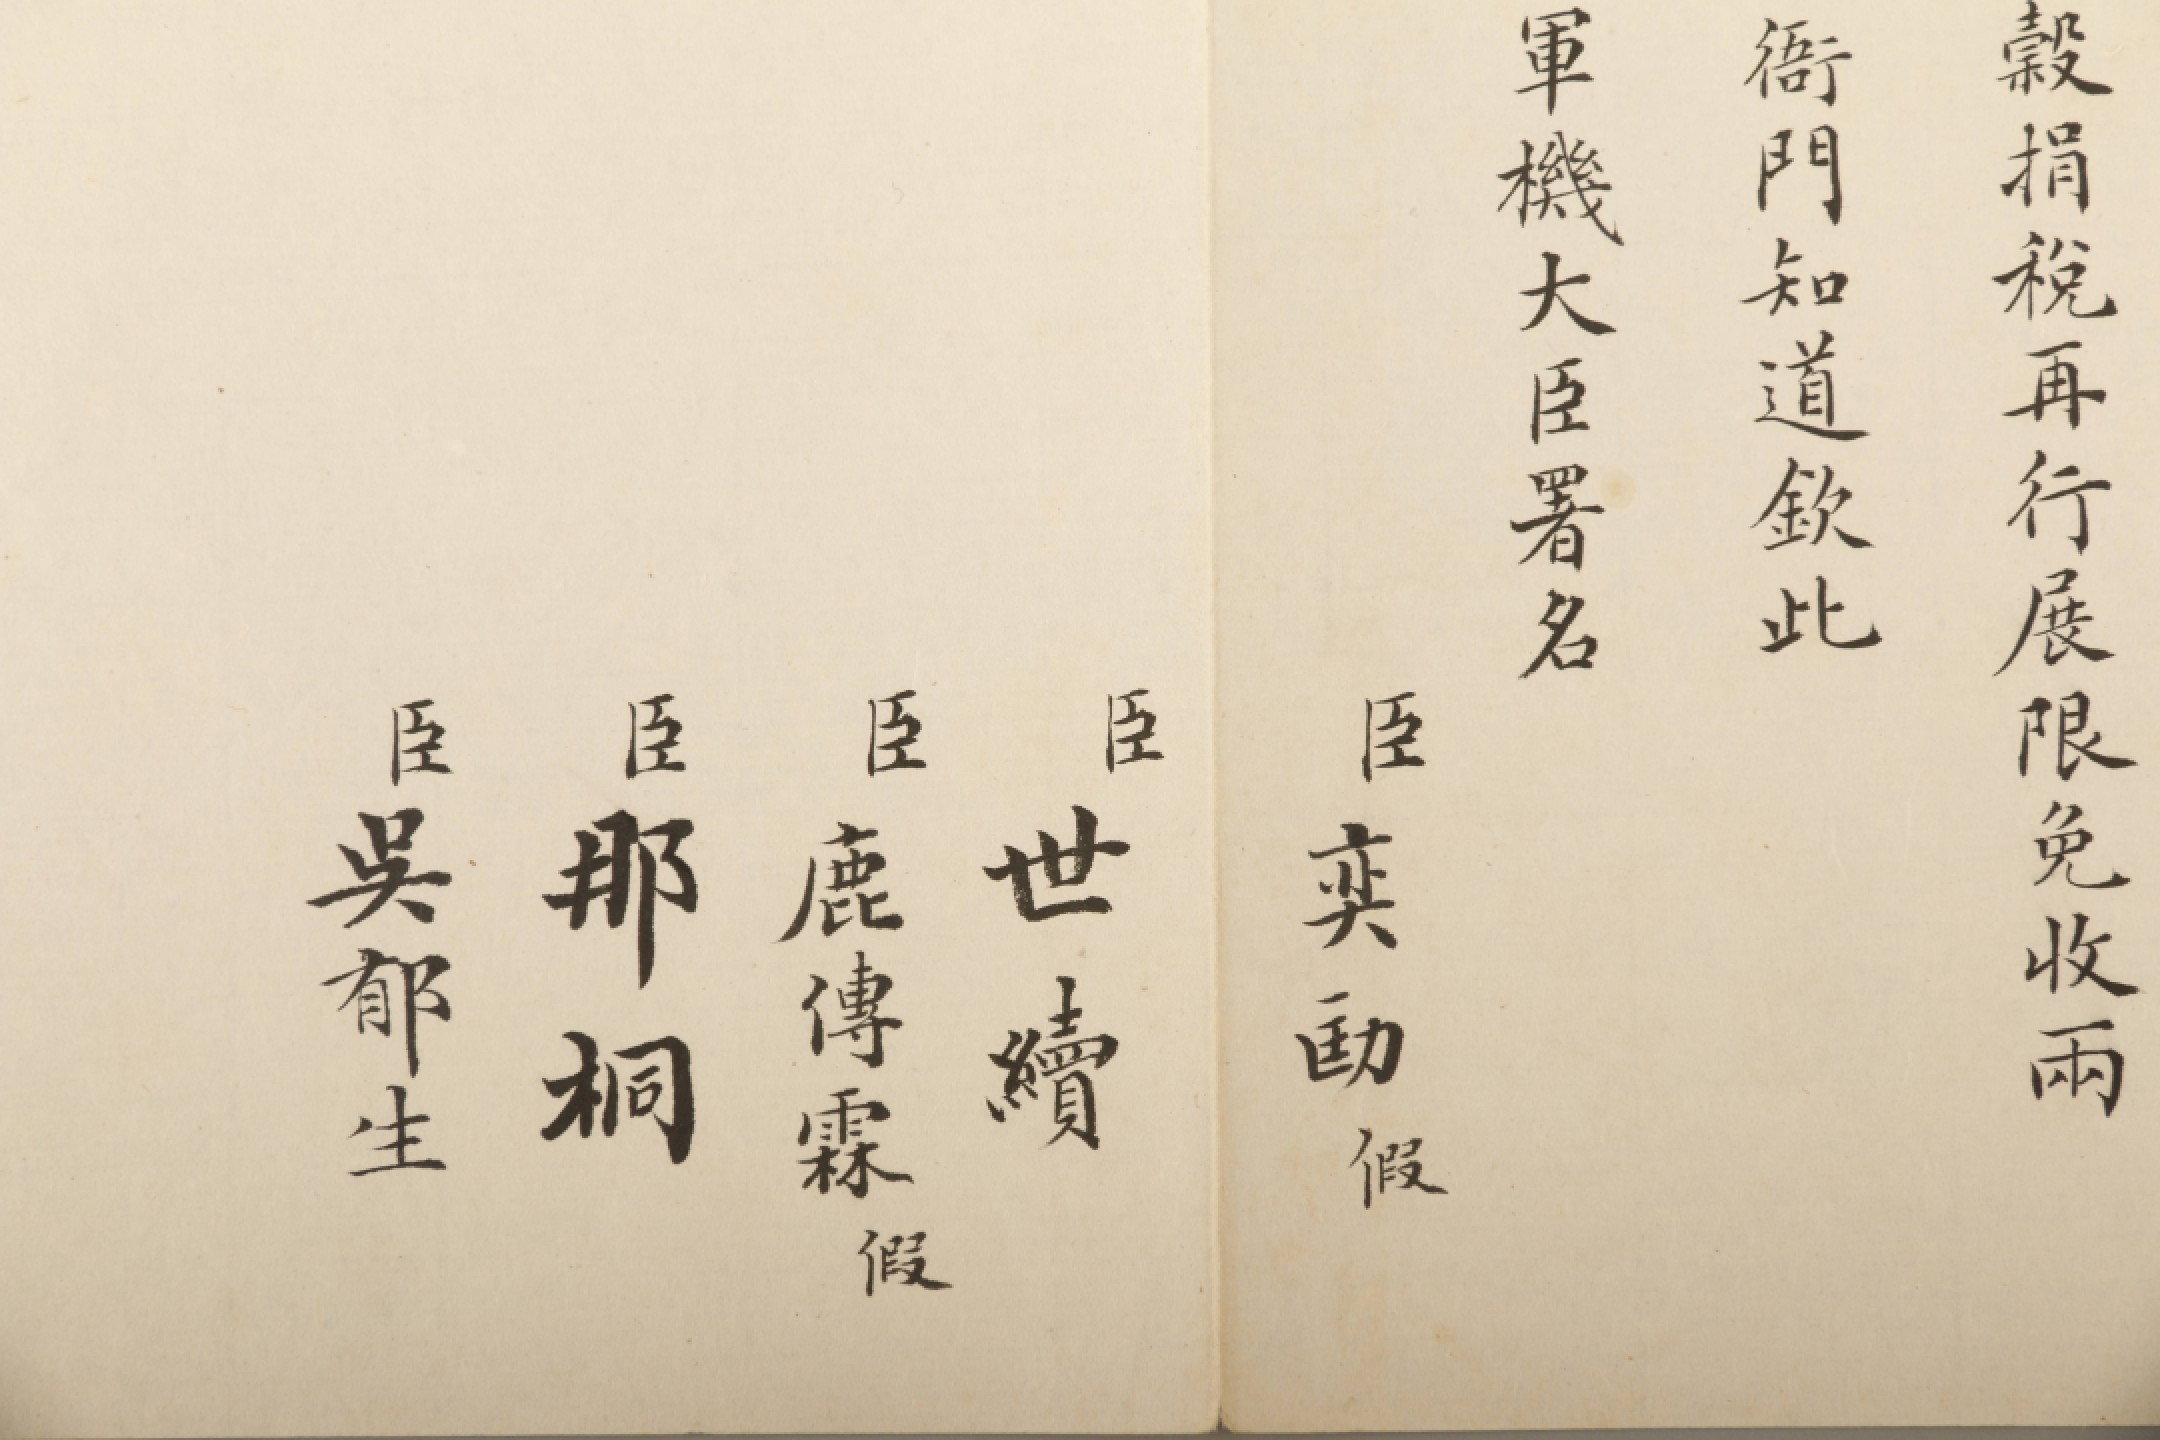 穀捐稅再行展限免收兩
衙門知道欽此
軍機大臣署名
臣奕劻假
臣世續
臣鹿傳霖假
臣那桐
臣吳郁生